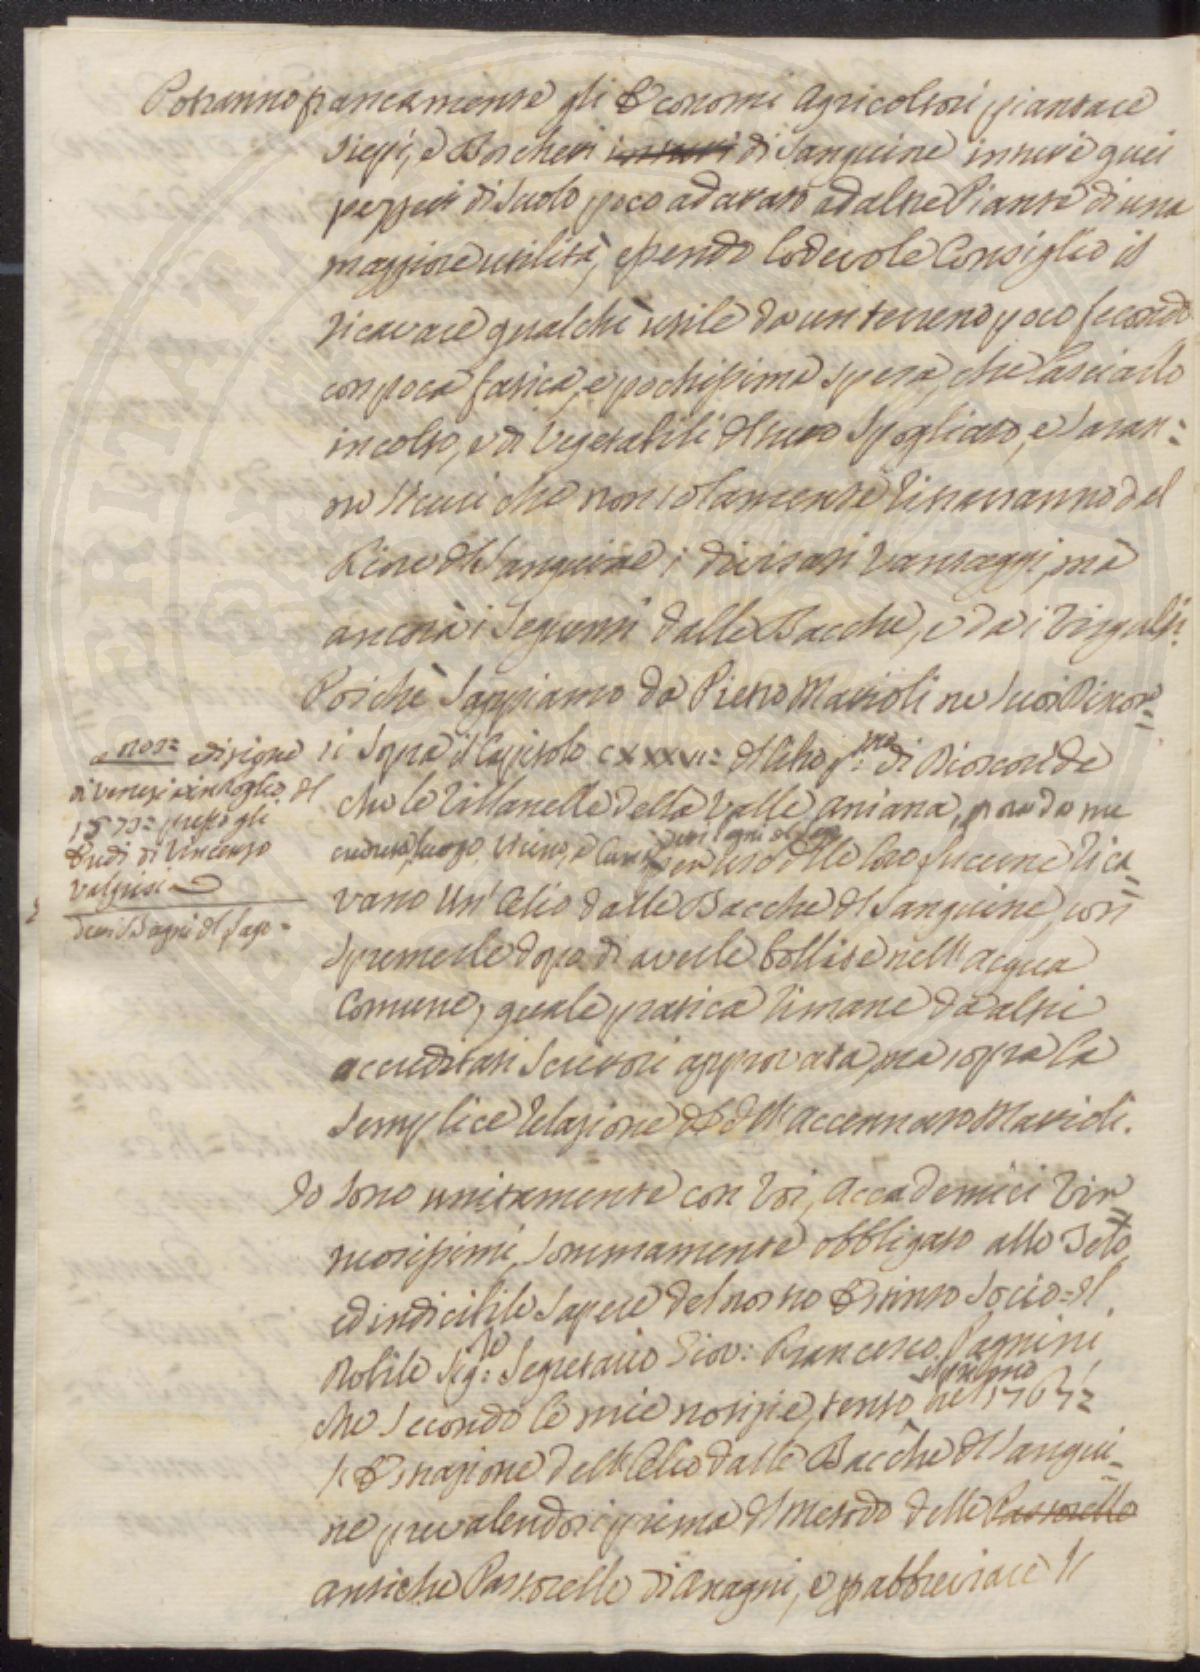 Potranno francamente gli Economi Agricoltori piantare
siepi, e Boschetti di Sanguine in tutti quei
pezzetti di Suolo poco adattato ad altre Piante di una
maggiore utilità, essendo lodevole Consiglio il
ricavare qualche utile da un terreno poco fecondo
con poca fatica, e pochissima spesa, che lasciarlo
incolto, e di Vegetabili del tutto Spogliato, e saran=
no sicuri che non solamente ritrarranno del
Fiore del Sanguine i divisati Vantaggi, mà
ancora i Seguenti dalle Bacche, e da i Virgulti.
Poichè Sappiamo da Pietro Mattioli ne suoi Discor=
si Sopra il Capitolo CXXXVI= del libro p.mo di Dioscoride
che le Villanelle della Valle Aniana,
luogo Vicino, uso delle loro lucerne rica=
vano un'Olio dalle Bacche del Sanguine, con
spremerle dopo di averle bollite nell'acqua
Comune, quale pratica rimane da altri
accreditati Scrittori approvata, ma sopra la
semplice relazione dell'accennato Mattioli.
not= edizione
di Venezia in foglio del
15 presso gli
Eredi di Vincenzo
Valgrisi
dei Bagni del Lago=
Io sono unitamente con Voi, Accademici Vir=
tuosissimi, sommamente obbligato allo Zelo,
ed indicibile Sapere del nostro Estinto Socio il
Nobile Sig:re Segretario Giov: Francesco Pagnini
che secondo le mie notizie, tentò il primo nel 176
l'Estrazione dell'Olio dalle Bacche del Sangui=
ne prevalendosi prima del metodo delle Pastorelle
antiche Pastorelle di Anagni, e p abbreviare il